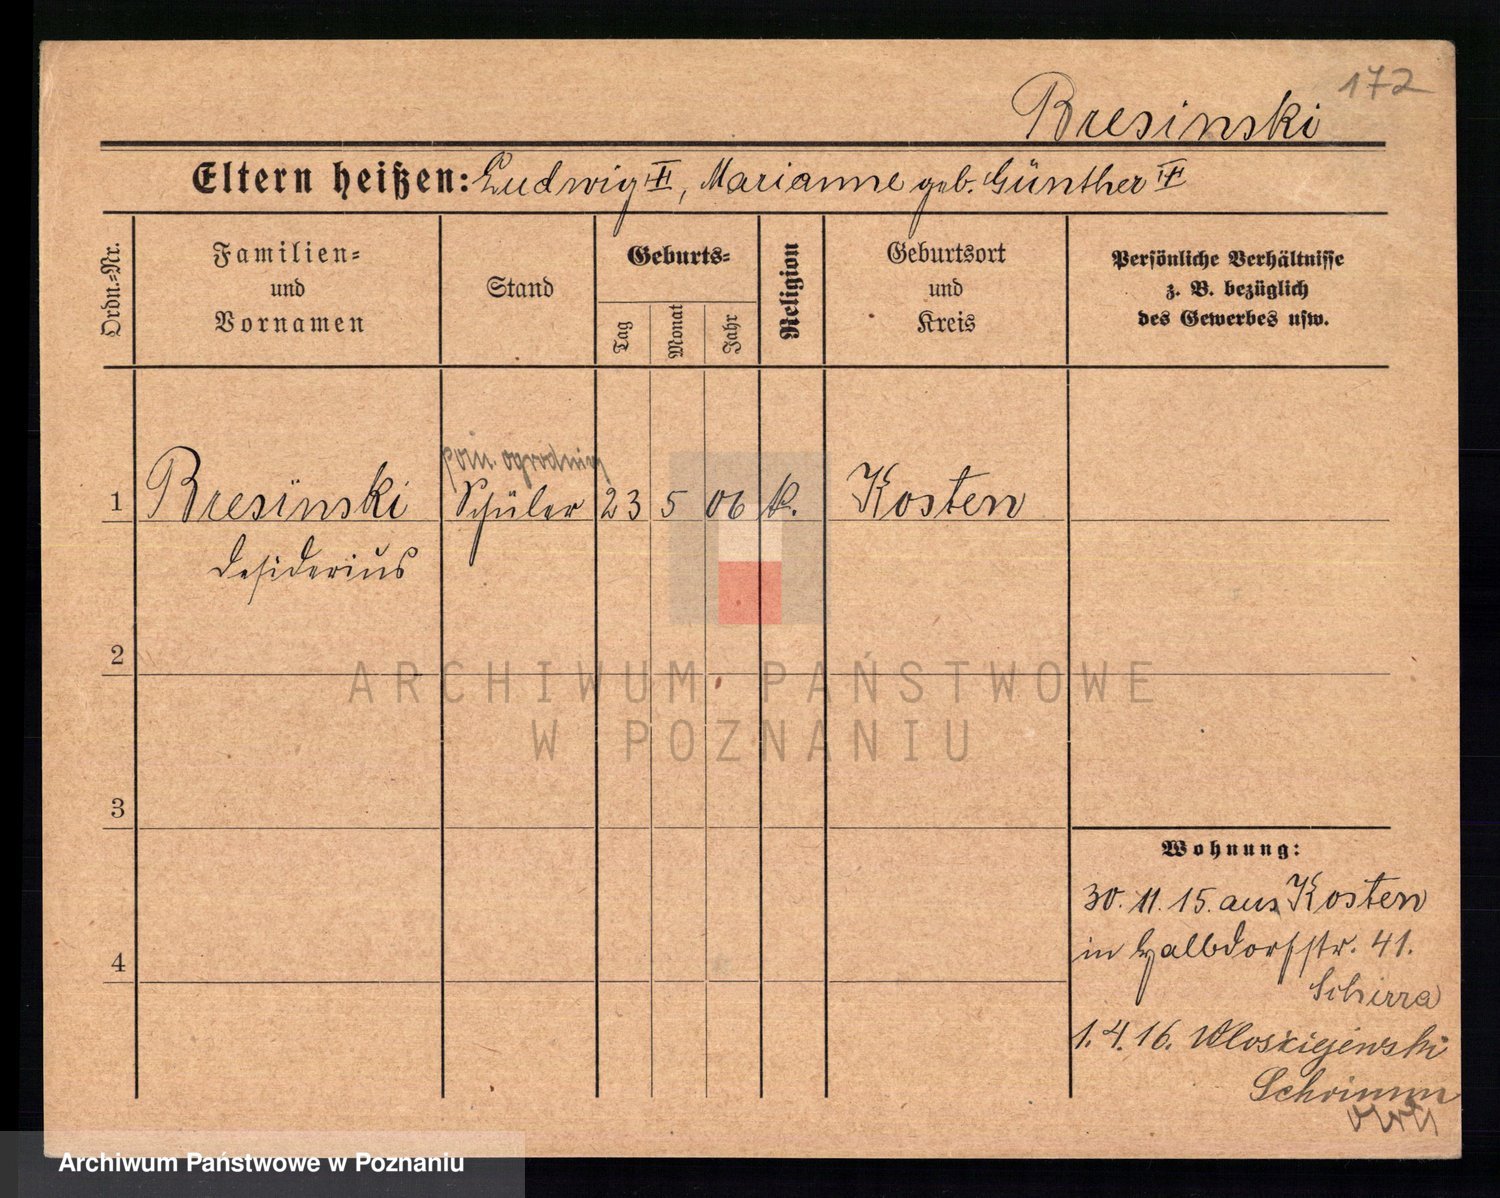 172
Bresinski
Eltern heißen: Ludwig, Marianne geb. Günther
Ordn.=Nr.
Familien=
und
Vornamen
Stand
Geburts=
Tag
Monat
Jahr
Religion
Geburtsort
und
Kreis
Persönliche Verhältnisse
z. B. bezüglich
des Gewerbes usw.
1 Bresinski Schüler 23 5 06 k. Kosten
Desiderius
2
3
4
Wohnung:
30. 11. 15. aus Kosten
in Halbdorfstr. 41.
Schirra
1. 4. 16. Wloskiejewski
Schrimm
ARCHIWUM PAŃSTWOWE
W POZNANIU
Archiwum Państwowe w Poznaniu